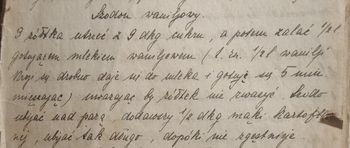 Szodon vaniljowy.
3 żółtka utrzeć z 9 dkg cukru, a potem zalać 1/2 l
gotującem mlekiem waniljowem (t. zn. 1/2 l wanilji
się drobno daje się do mleka i gotuje się 5 min
mieszając) uważając by żółtek nie zwarzyć. Szodo
ubijać nad parą, dodawszy 1/2 dkg mąki kartofla
nej, ubijać tak długo, dopóki nie zgęstnieje.